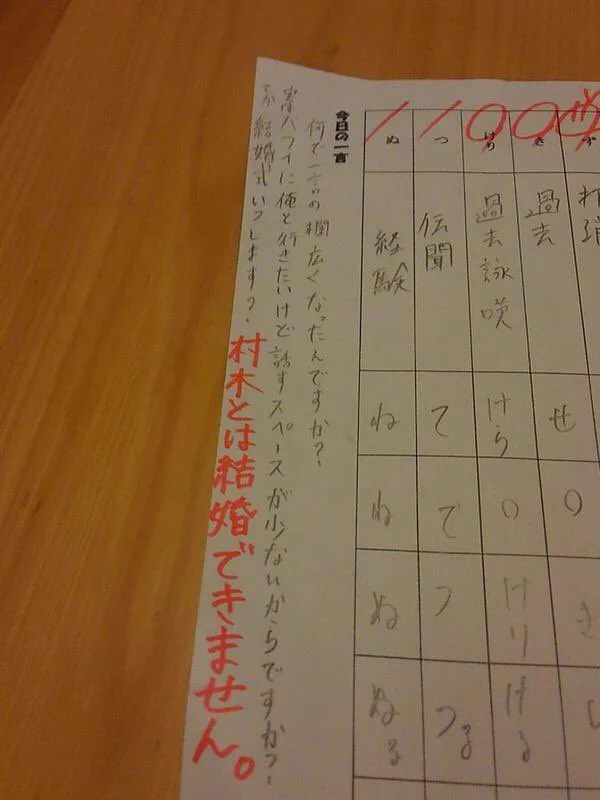 ず
打消
き
過去
せ
○
き
し
けり
過去詠嘆
けら
○
けり
ける
つ
伝聞
て
で
つ
つる
ぬ
経験
ね
ね
ぬ
ぬる
今日の一言
何で一言の欄広くなったんですか?
実はハワイに俺と行きたいけど話すスペースが少ないからですか?
てか結婚式いつします?
村木とは結婚できません。